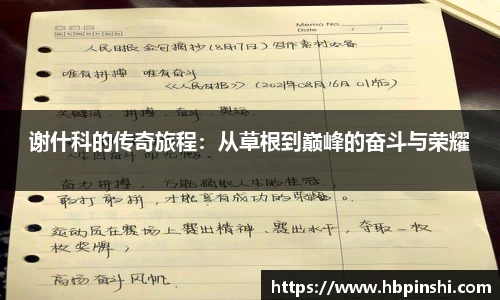 Memo No.
Date / /
人民日报 金句摘抄(8月17日) 写作素材必备
唯有拼搏 唯有奋斗
《人民日报》(2021年08月16日 01版)
关键词: 拼搏、奋斗、奥运
谢什科的传奇旅程：从草根到巅峰的奋斗与荣耀
奋力拼搏, 方能摘取人生的桂冠,
敢打敢拼,才能享有成功的荣耀。
运动员在赛场上赛出精神、赛出水平, 夺取一枚
枚奖牌,
高扬奋斗风帆,
https://www.hbpinshi.com